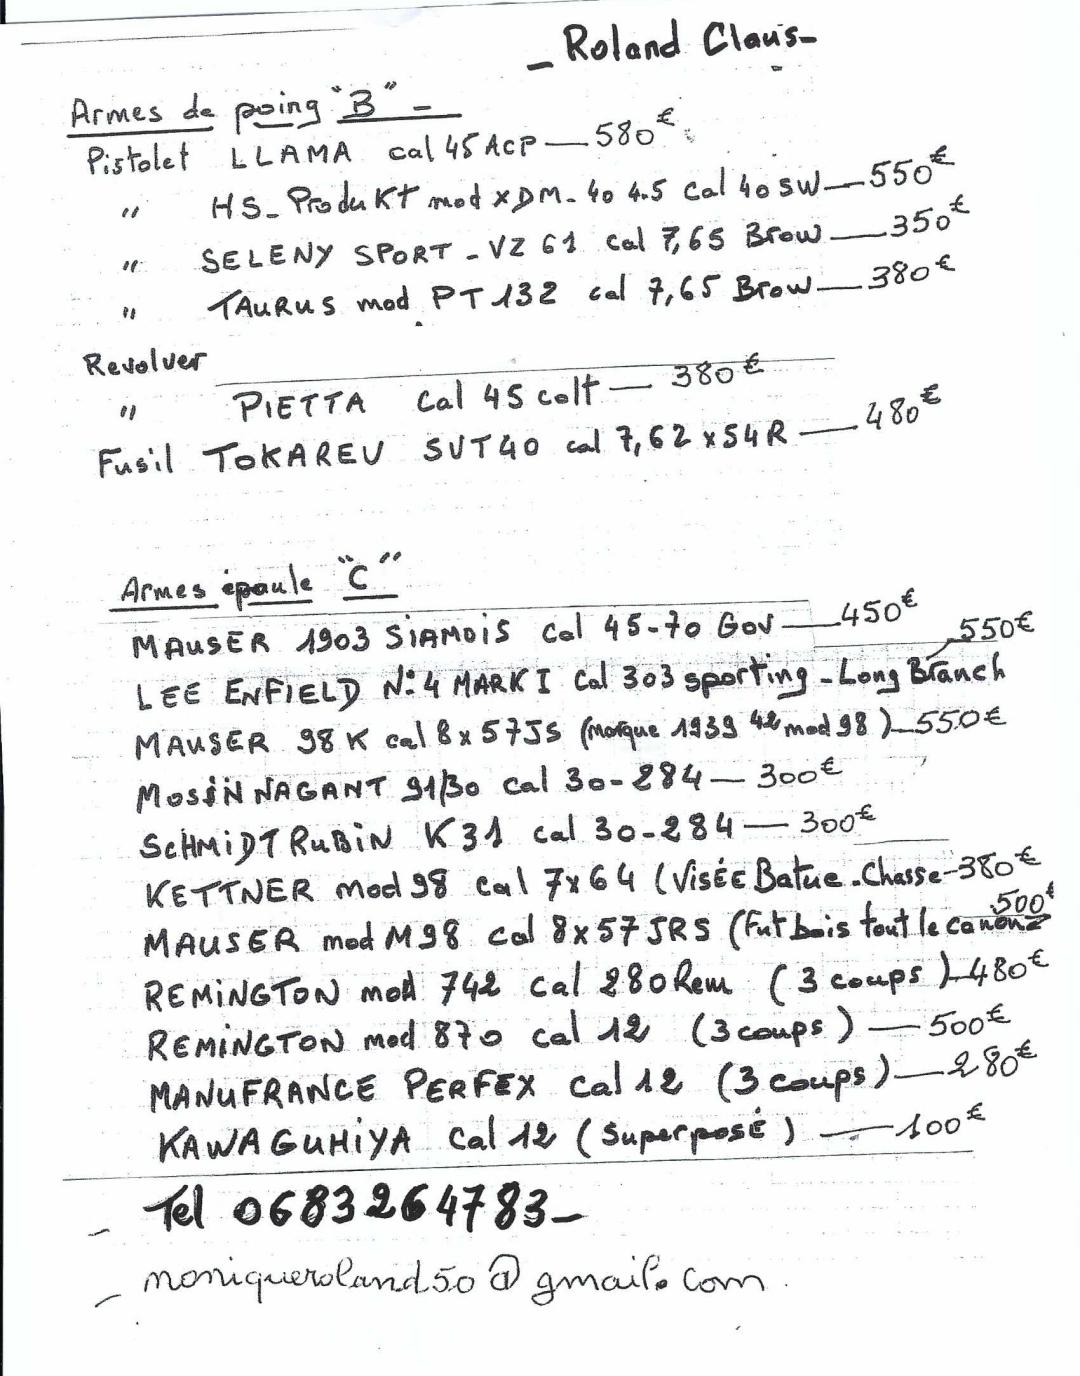 _ Roland Claus_
Armes de poing "B" _
Pistolet LLAMA cal 45 ACP — 580€
" HS_Produkt mod XDM-40 4.5 cal 40 SW — 550€
" SELENY SPORT - VZ 61 cal 7,65 Brow — 350€
" TAURUS mod PT 132 cal 7,65 Brow — 380€
Revolver
" PIETTA Cal 45 colt — 380€
Fusil TOKAREV SVT40 cal 7,62 x 54R — 480€
Armes épaule "C"
MAUSER 1903 SIAMOIS Cal 45-70 Gov — 450€
LEE ENFIELD N:4 MARK I Cal 303 sporting - Long Branch 550€
MAUSER 98K cal 8x57JS (marque 1939 42 mod 98) — 550€
MOSIN NAGANT 91/30 cal 30-284 — 300€
SCHMIDT RUBIN K31 cal 30-284 — 300€
KETTNER mod 98 cal 7x64 (Visée Batue.Chasse - 380€
MAUSER mod M98 cal 8x57 JRS (Fut bois tout le canon 500€
REMINGTON mod 742 cal 280 Rem (3 coups) — 480€
REMINGTON mod 870 cal 12 (3 coups) — 500€
MANUFRANCE PERFEX cal 12 (3 coups) — 280€
KAWAGUHIYA Cal 12 (Superposé) — 100€
Tel 0683264783_
_ moniqueroland50@gmail.com.